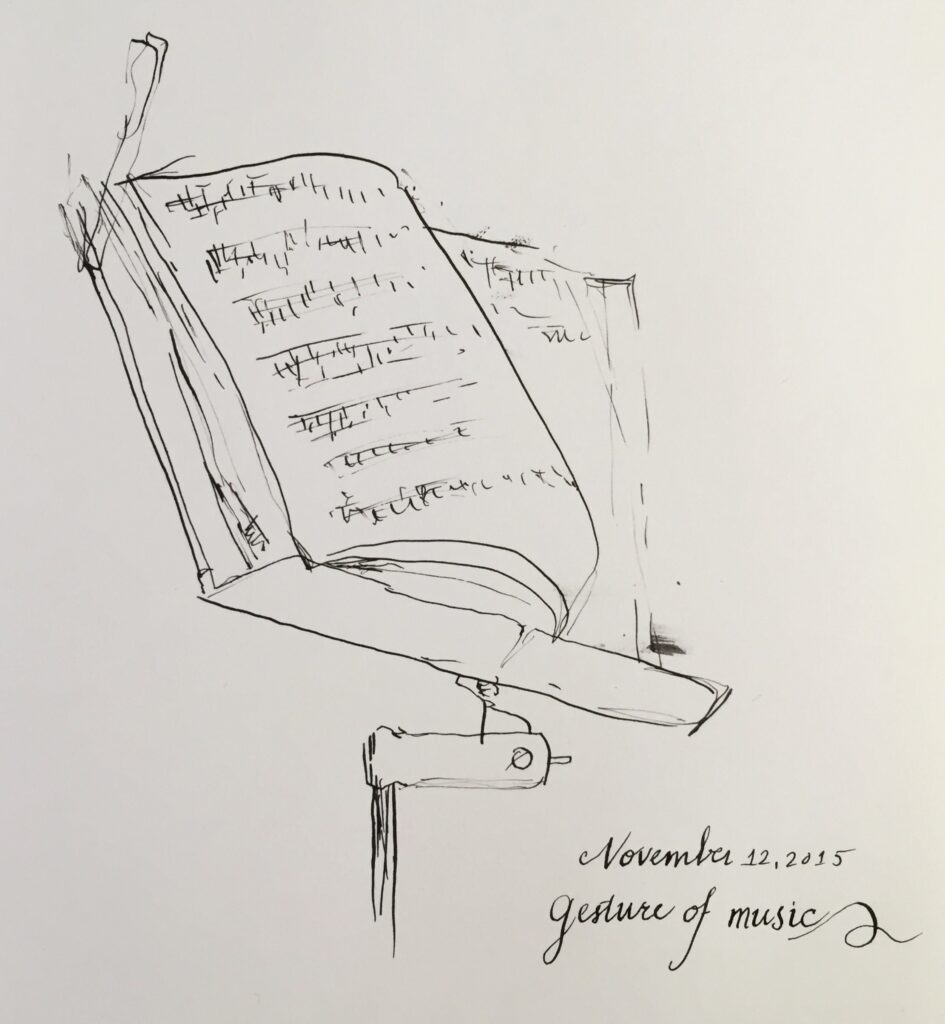 November 12, 2015
Gesture of music